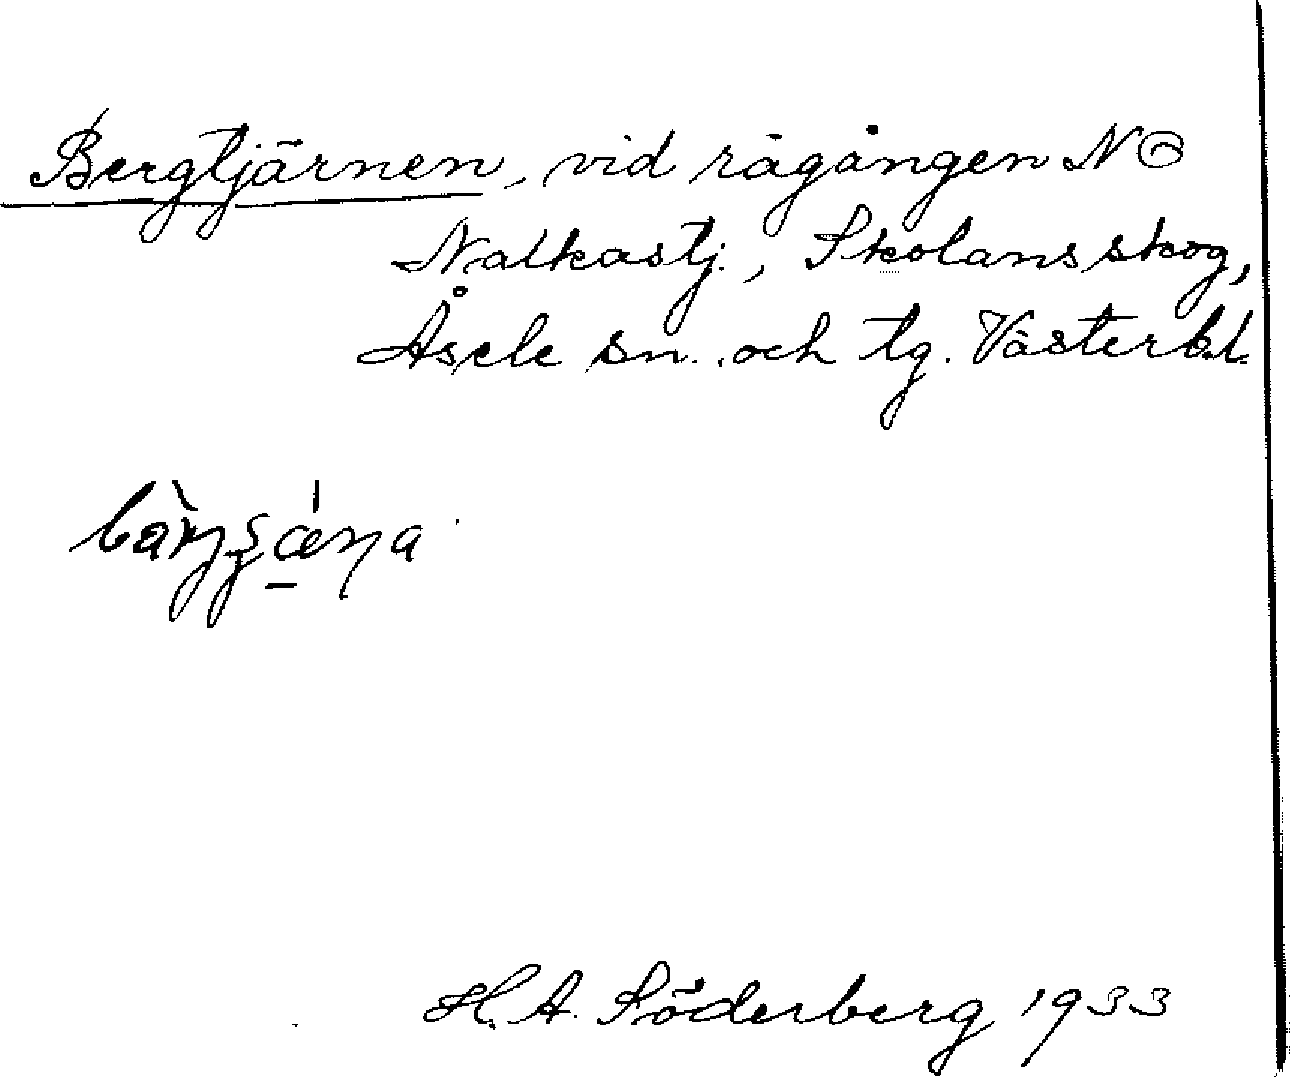 Bergtjärnen, vid rågången NO
Nalkastj., Skolans skog,
Åsele sn. och tg. Västerb.l.
H. A. Söderberg 1933